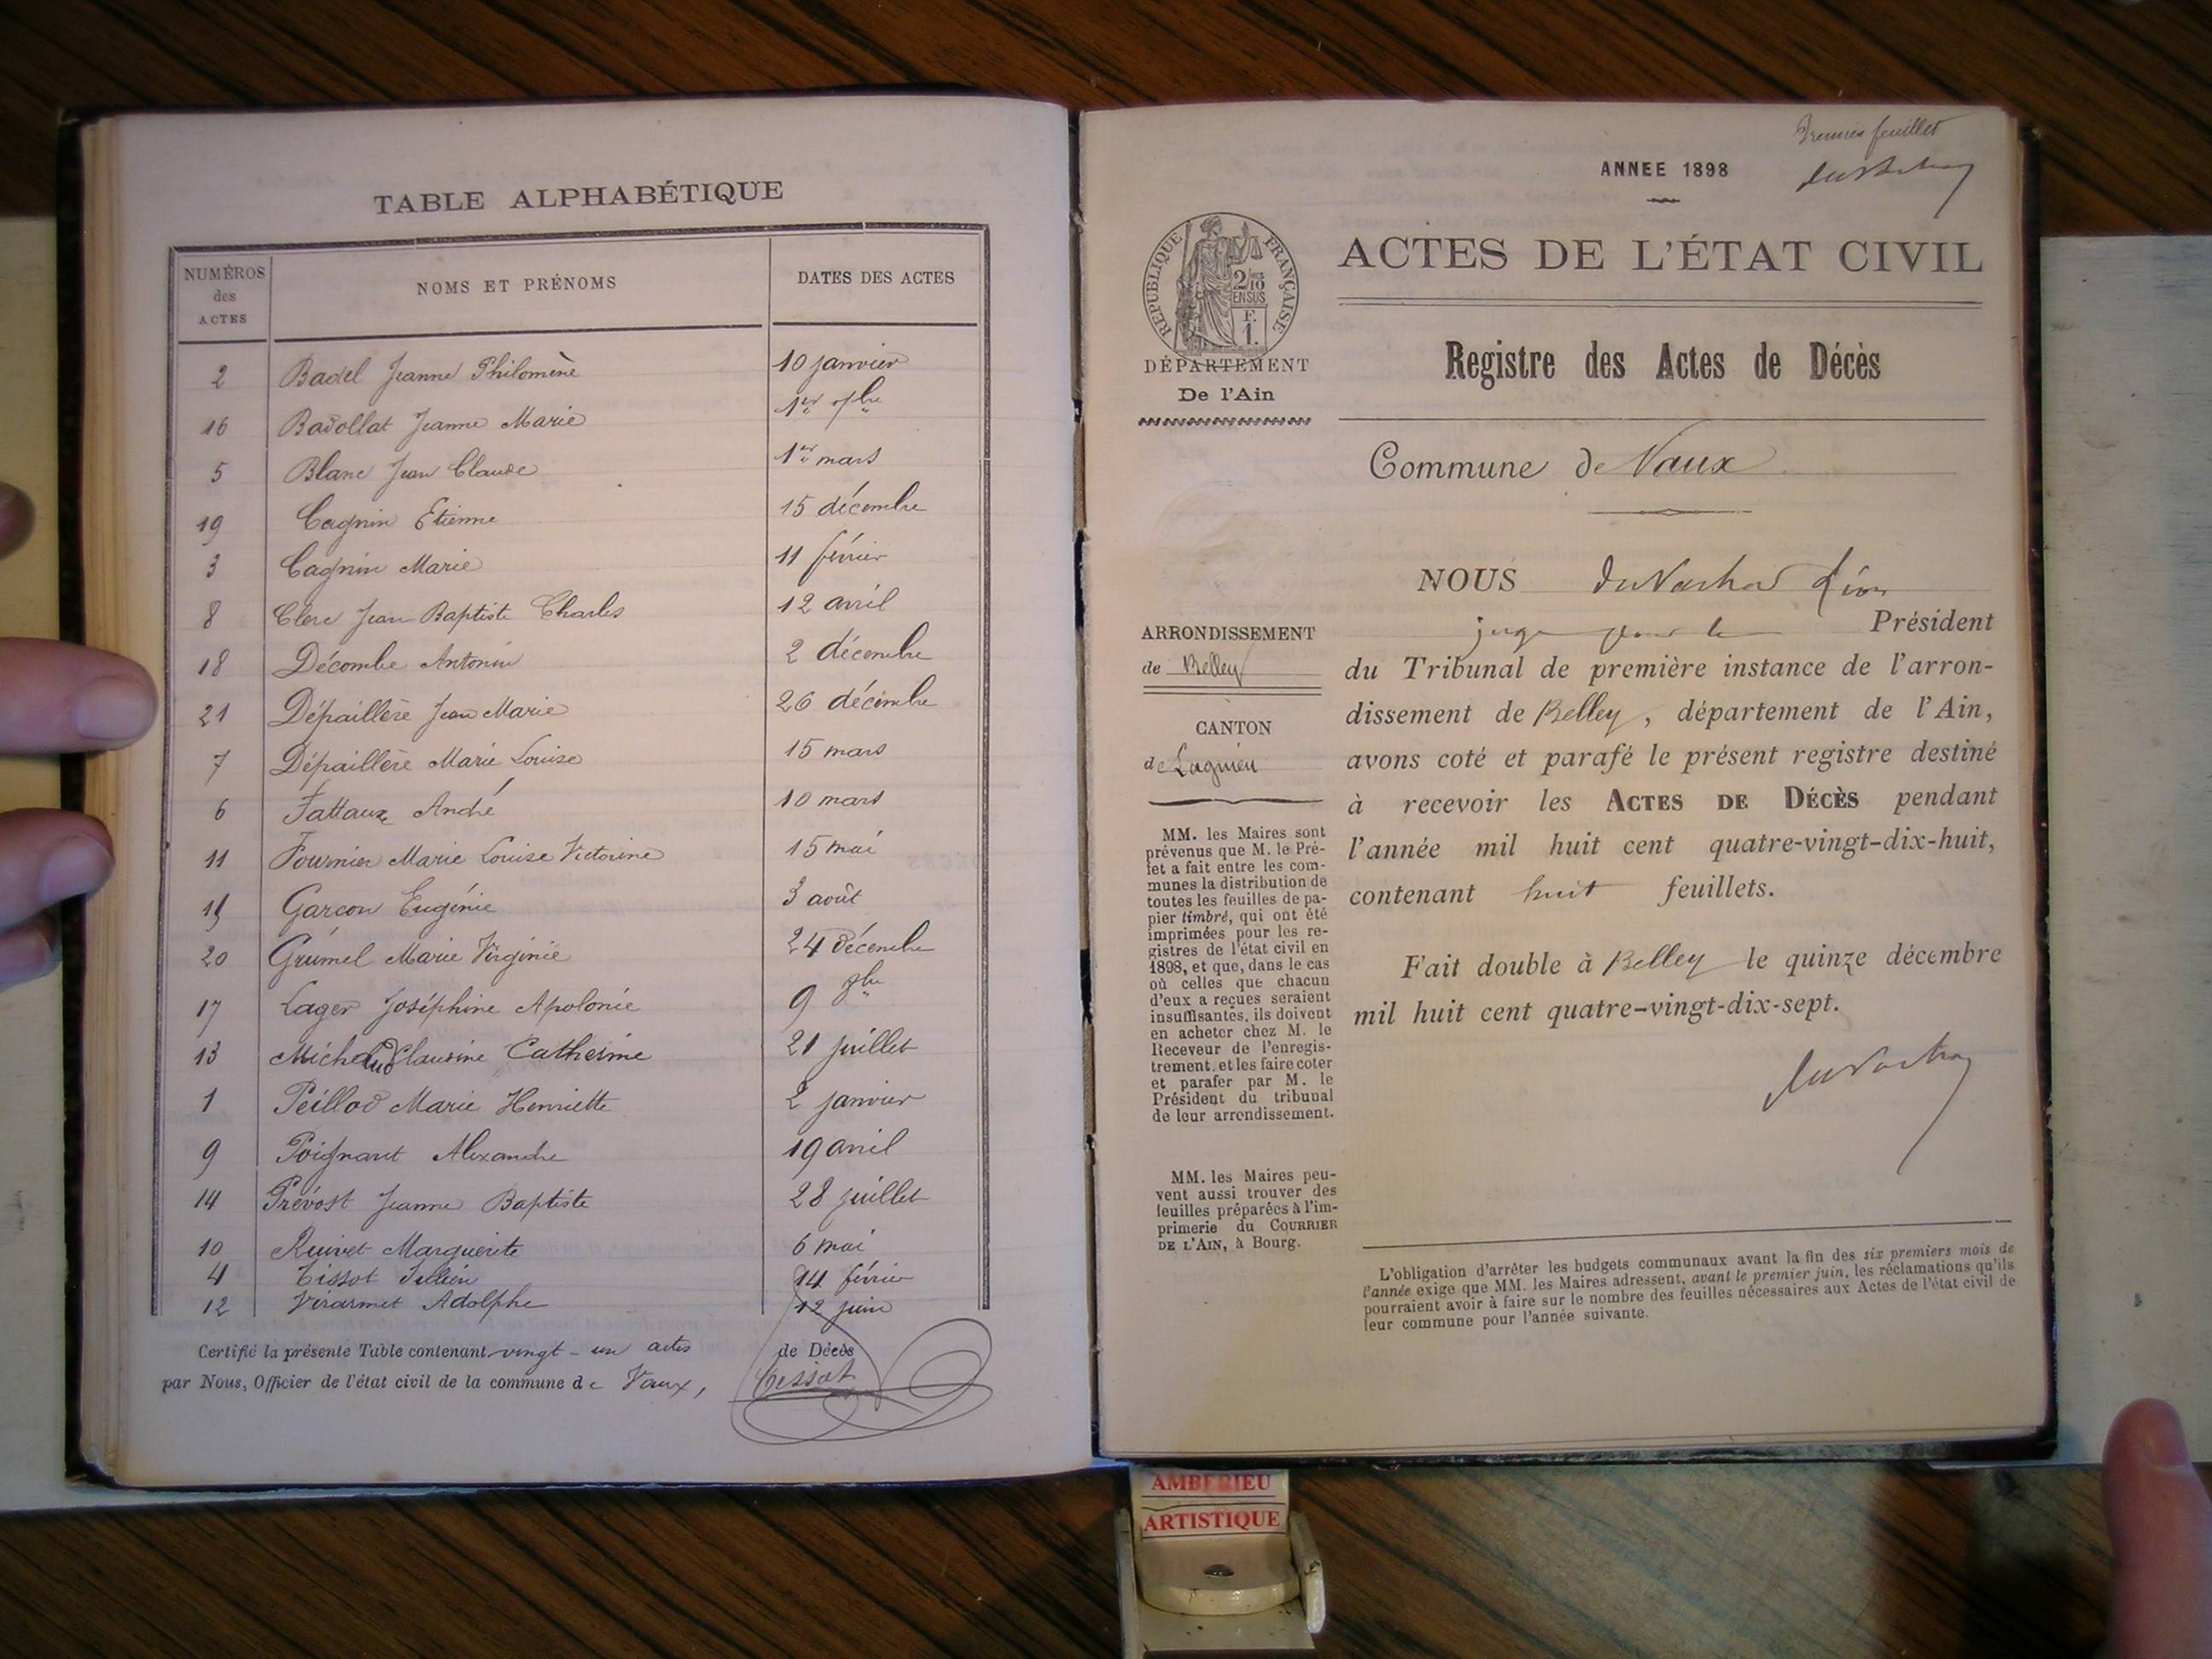 TABLE ALPHABÉTIQUE
NUMÉROS des ACTES
NOMS ET PRÉNOMS
DATES DES ACTES
2 Badel Jeanne Philomène 10 janvier
16 Badollat Jeanne Marie 1er
5 Blanc Jean Claude 1er mars
19 Cagnin Etienne 15 décembre
3 Cagnin Marie 11 février
8 Clerc Jean Baptiste Charles 12 avril
18 Décombe Antonin 2 décembre
21 Dépaillère Jean Marie 26 décembre
7 Dépaillère Marie Louise 15 mars
6 Fattaux André 10 mars
11 Fournier Marie Louise Victorine 15 mai
15 Garcon Eugénie 3 août
20 Grumel Marie Virginie 24 décembre
17 Lager Joséphine Apolonie 9
13 Michaud Claudine Catherine 21 juillet
1 Peillod Marie Henriette 2 janvier
9 Poignant Alexandre 19 avril
14 Prévost Jeanne Baptiste 28 juillet
10 Ruivet Marguerite 6 mai
4 Tissot Jullien 14 février
12 Virarmet Adolphe 12 juin
Certifié la présente Table contenant vingt-un actes de Décès
par Nous, Officier de l'état civil de la commune de Vaux,
Tissot
Premier feuillet
ANNEE 1898
RÉPUBLIQUE FRANÇAISE
2/10 EN SUS
F. 1.
ACTES DE L'ÉTAT CIVIL
DÉPARTEMENT
De l'Ain
Registre des Actes de Décès
Commune de Vaux
ARRONDISSEMENT
de Belley
CANTON
de Lagnieu
MM. les Maires sont
prévenus que M. le Pré-
fet a fait entre les com-
munes la distribution de
toutes les feuilles de pa-
pier timbré, qui ont été
imprimées pour les re-
gistres de l'état civil en
1898, et que, dans le cas
où celles que chacun
d'eux a reçues seraient
insuffisantes, ils doivent
en acheter chez M. le
Receveur de l'enregis-
trement, et les faire coter
et parafer par M. le
Président du tribunal
de leur arrondissement.
MM. les Maires peu-
vent aussi trouver des
feuilles préparées à l'im-
primerie du COURRIER
DE L'AIN, à Bourg.
NOUS duVachat Léon
juge pour le Président
du Tribunal de première instance de l'arron-
dissement de Belley, département de l'Ain,
avons coté et parafé le présent registre destiné
à recevoir les ACTES DE DÉCÈS pendant
l'année mil huit cent quatre-vingt-dix-huit,
contenant huit feuillets.
Fait double à Belley le quinze décembre
mil huit cent quatre-vingt-dix-sept.
duVachat
L'obligation d'arrêter les budgets communaux avant la fin des six premiers mois de
l'année exige que MM. les Maires adressent, avant le premier juin, les réclamations qu'ils
pourraient avoir à faire sur le nombre des feuilles nécessaires aux Actes de l'état civil de
leur commune pour l'année suivante.
AMBERIEU
ARTISTIQUE